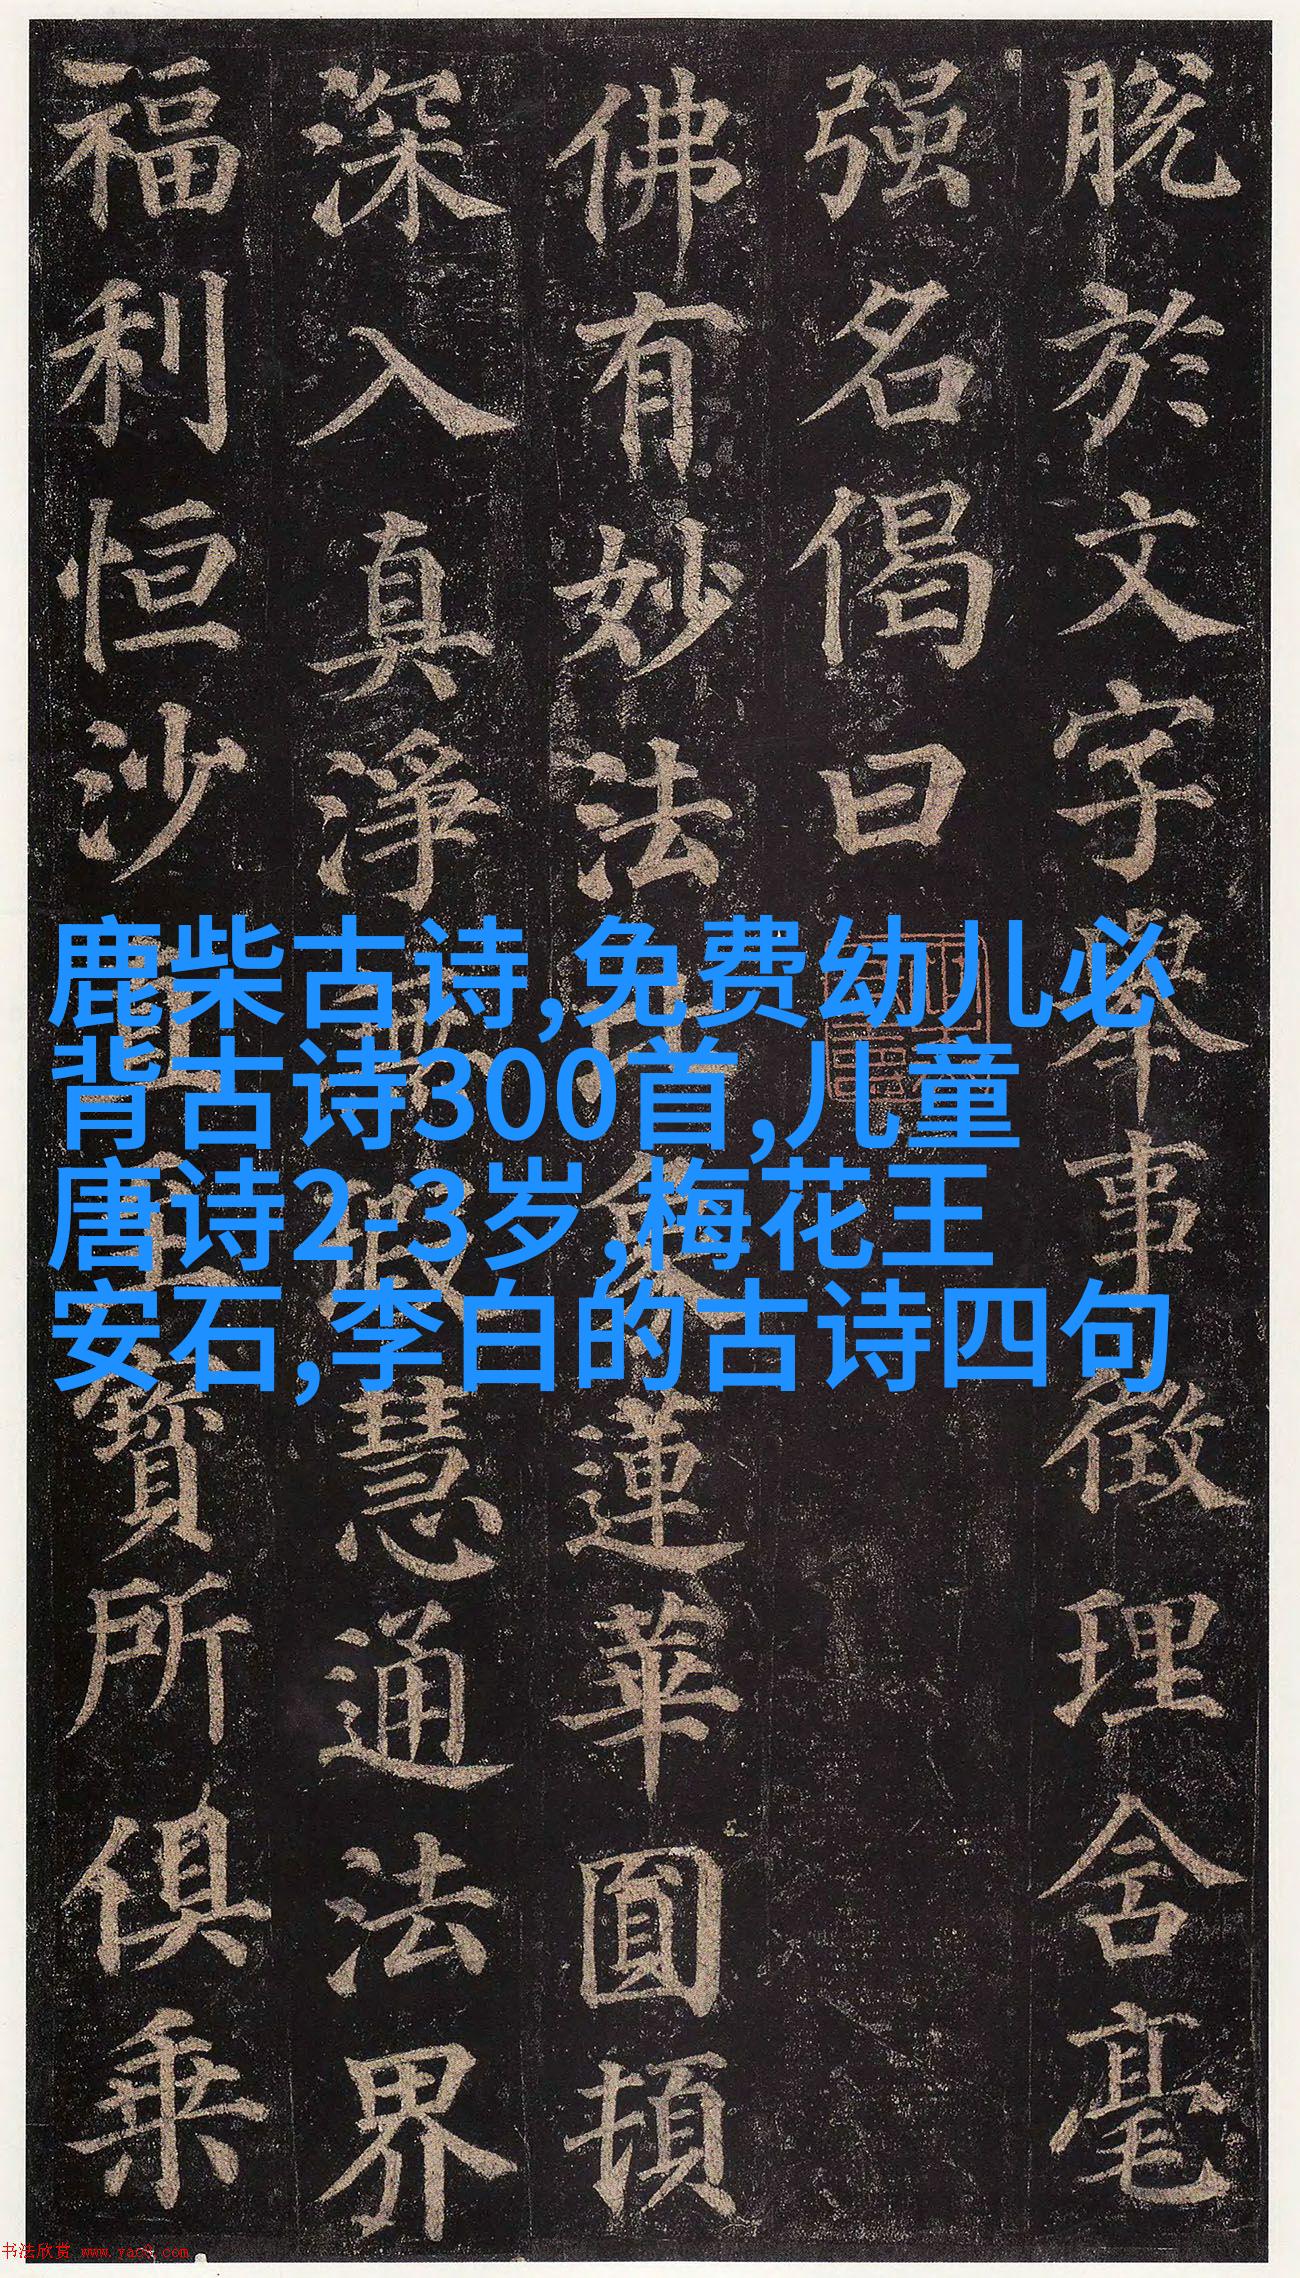 脱於文字舉事徵理含毫
强名偈曰
佛有妙法比象蓮華圓頓
深入真淨無瑕慧通法界
福利恒沙直至寶所俱乘
鹿柴古诗,免费幼儿必
背古诗300首,儿童
唐诗2-3岁,梅花王
安石,李白的古诗四句
书法欣赏 www.yac8.com